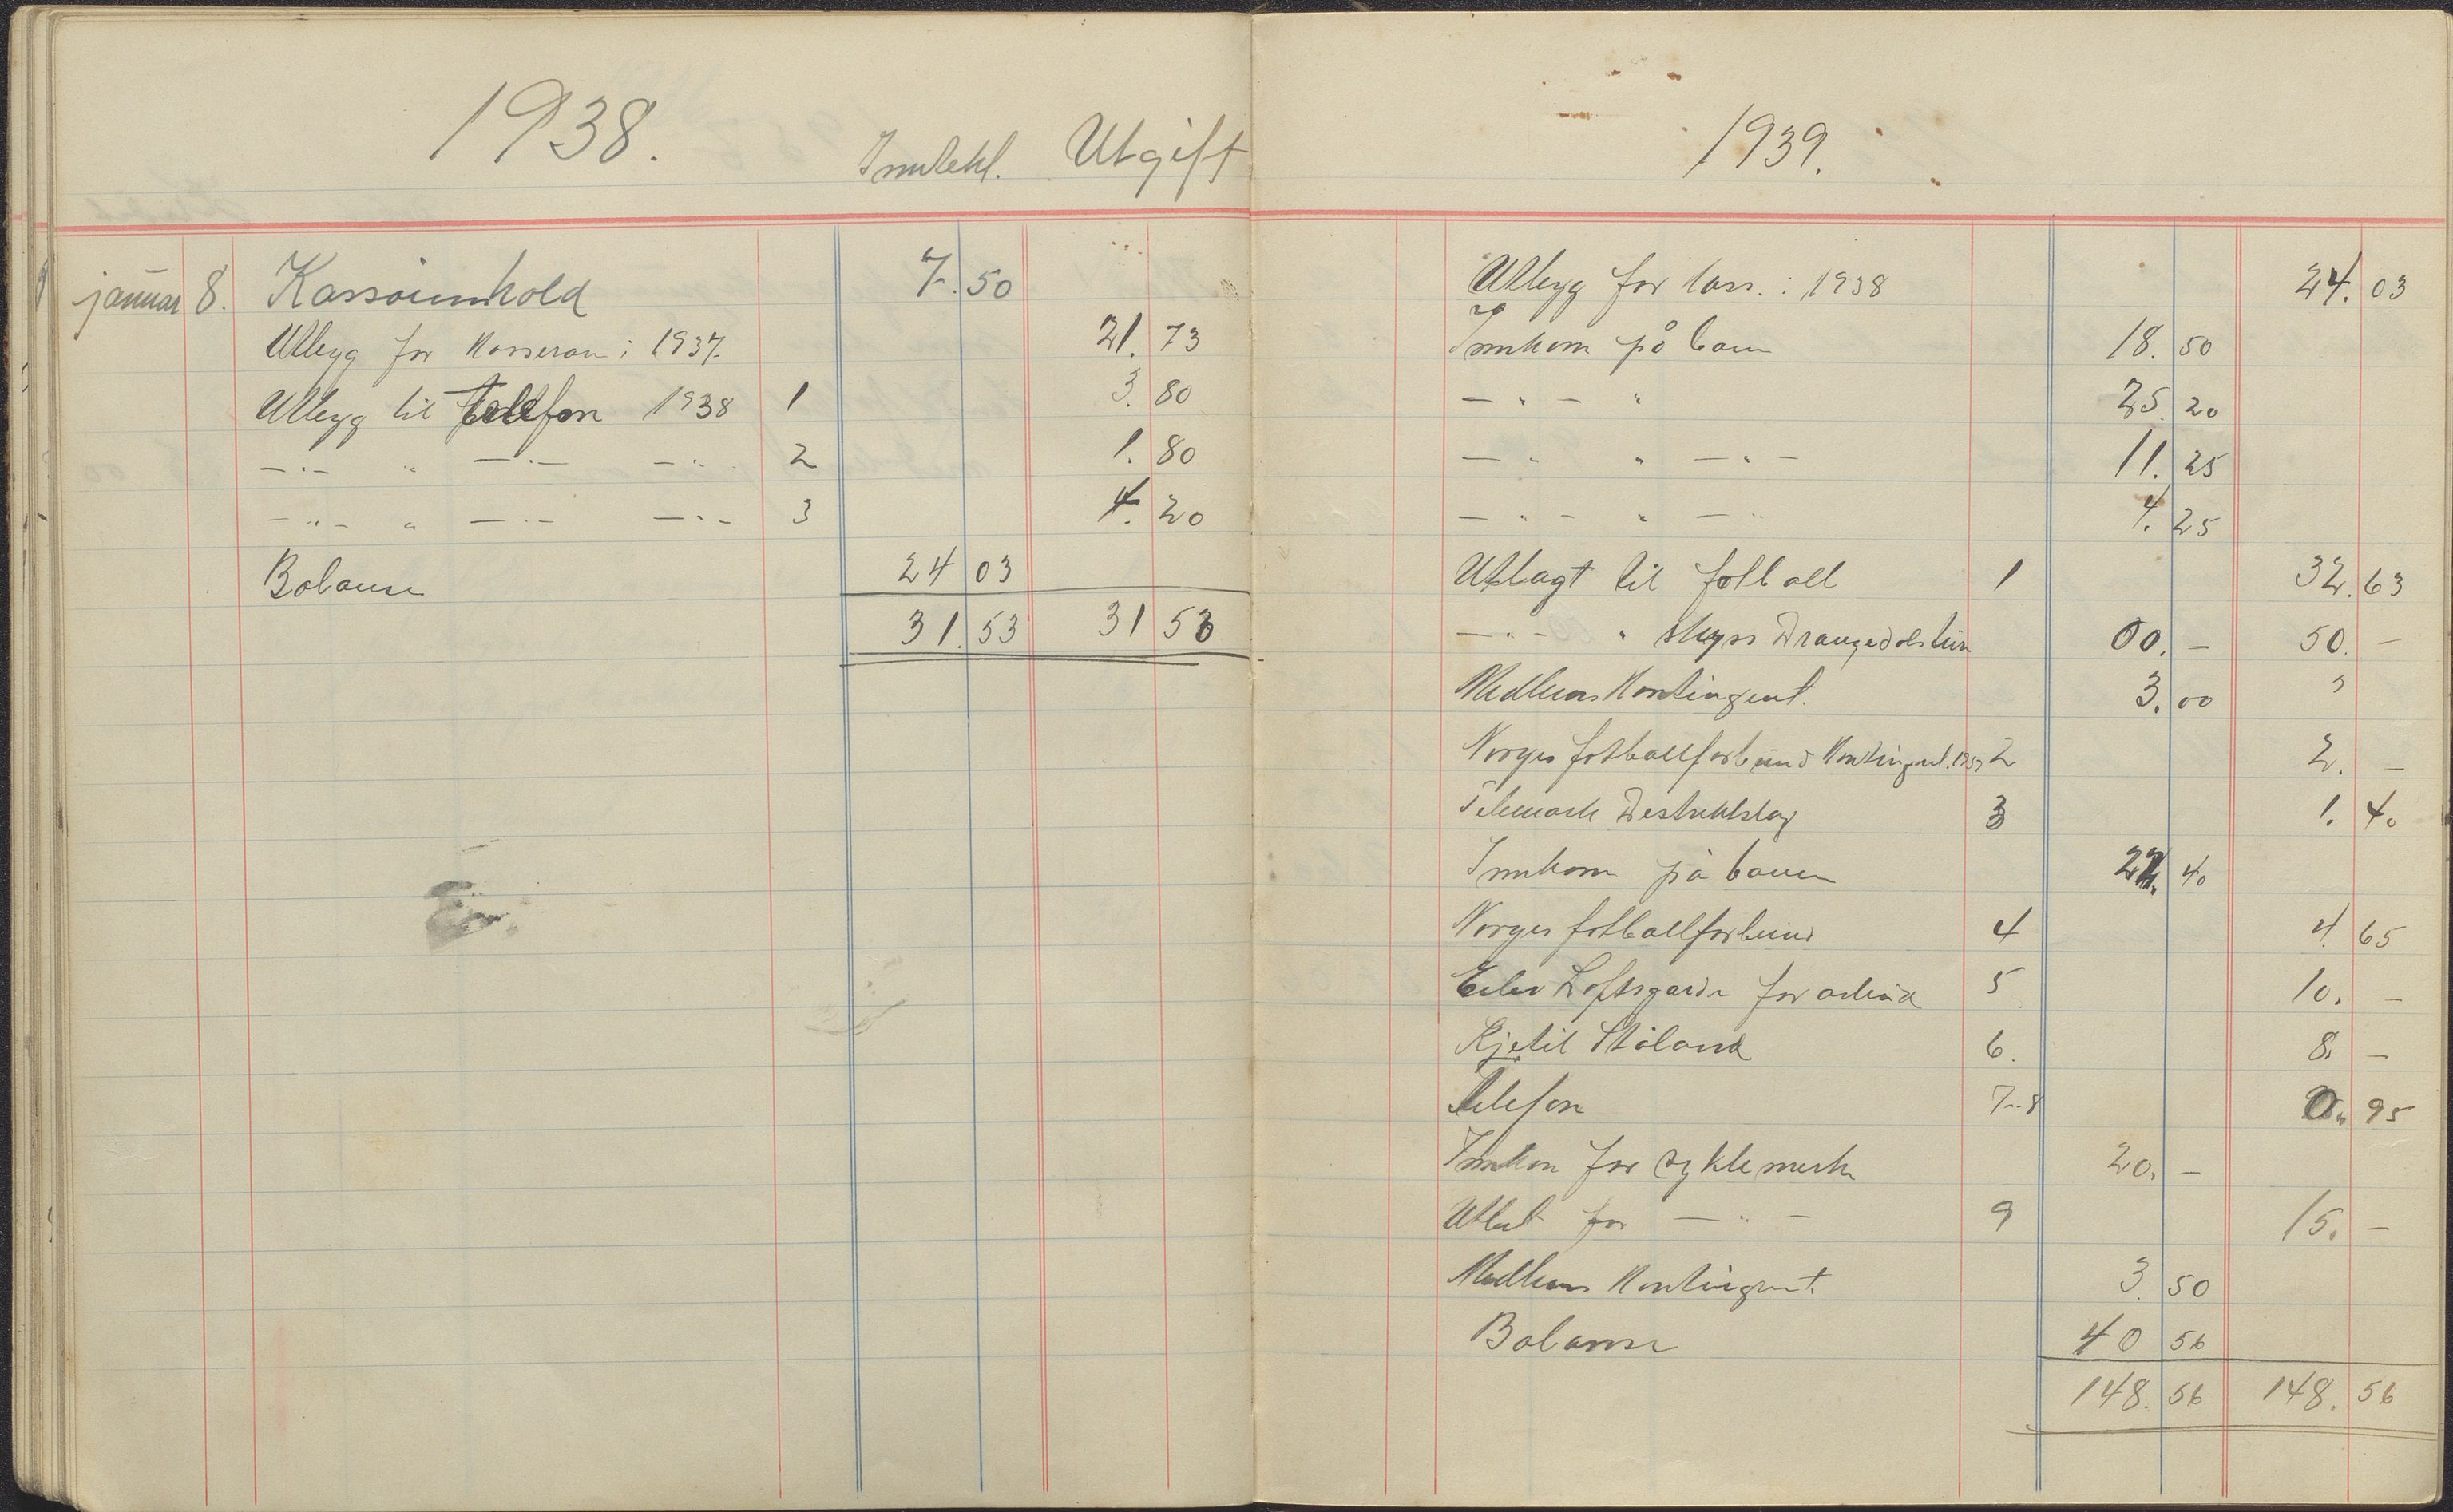 1938.
Inntekt. Utgift
januar 8. Kassainnhold 7.50
Utlegg for Kasseran i 1937. 21.73
Utlegg til telefon 1938 1 3.80
—"— " —"— —"— 2 1.80
—"— " —"— —"— 3 4.20
Balanse 24 03
31.53 31 53
1939.
Utlegg for kass. i 1938 24.03
Innkom på bane 18.50
— " — " 25 20
— " " — " — 11.25
— " — " — " 4.25
Utlagt til fotball 1 32.63
— " — " skyss Drangedalstur 00.— 50.—
Medlems Kontingent. 3.00
Norges fotballforbund Kontingent. 2 2.—
Telemark Destriktslag 3 1.40
Innkom på banen 22.40
Norges fotballforbund 4 4.65
Loftsgarde for arbeid 5 10.—
Kjetil Ståland 6. 8.—
Telefon 7-8 0.95
Innkom for syklemerke 20.—
Utlat for — " — 9 15.—
Medlems Kontingent. 3.50
Balanse 40 56
148.56 148.56